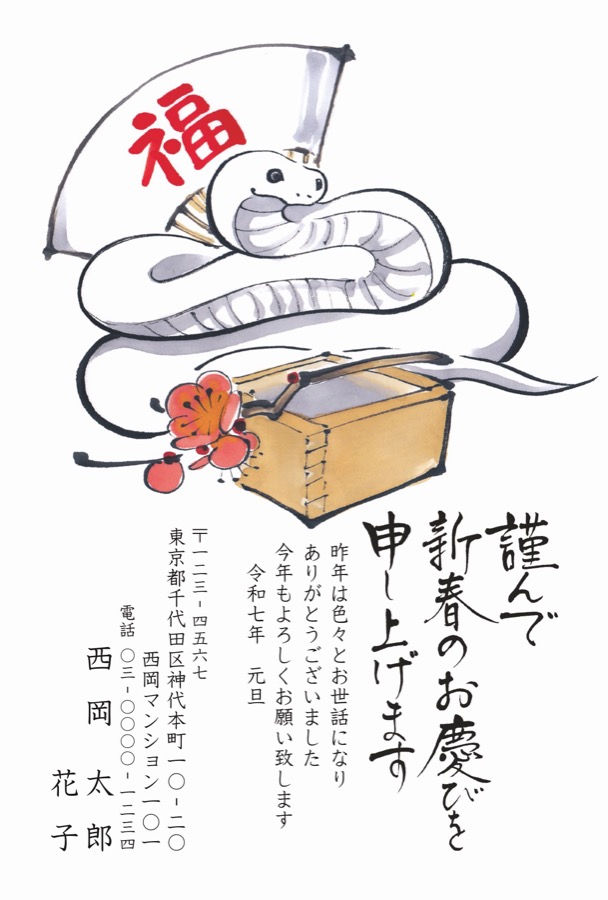 福
謹んで
新春のお慶びを
申し上げます
昨年は色々とお世話になり
ありがとうございました
今年もよろしくお願い致します
令和七年　元旦
〒一二三-四五六七
東京都千代田区神代本町一〇-二〇
西岡マンション一〇一
電話　〇三-〇〇〇〇-一二三四
西岡　太郎
花子